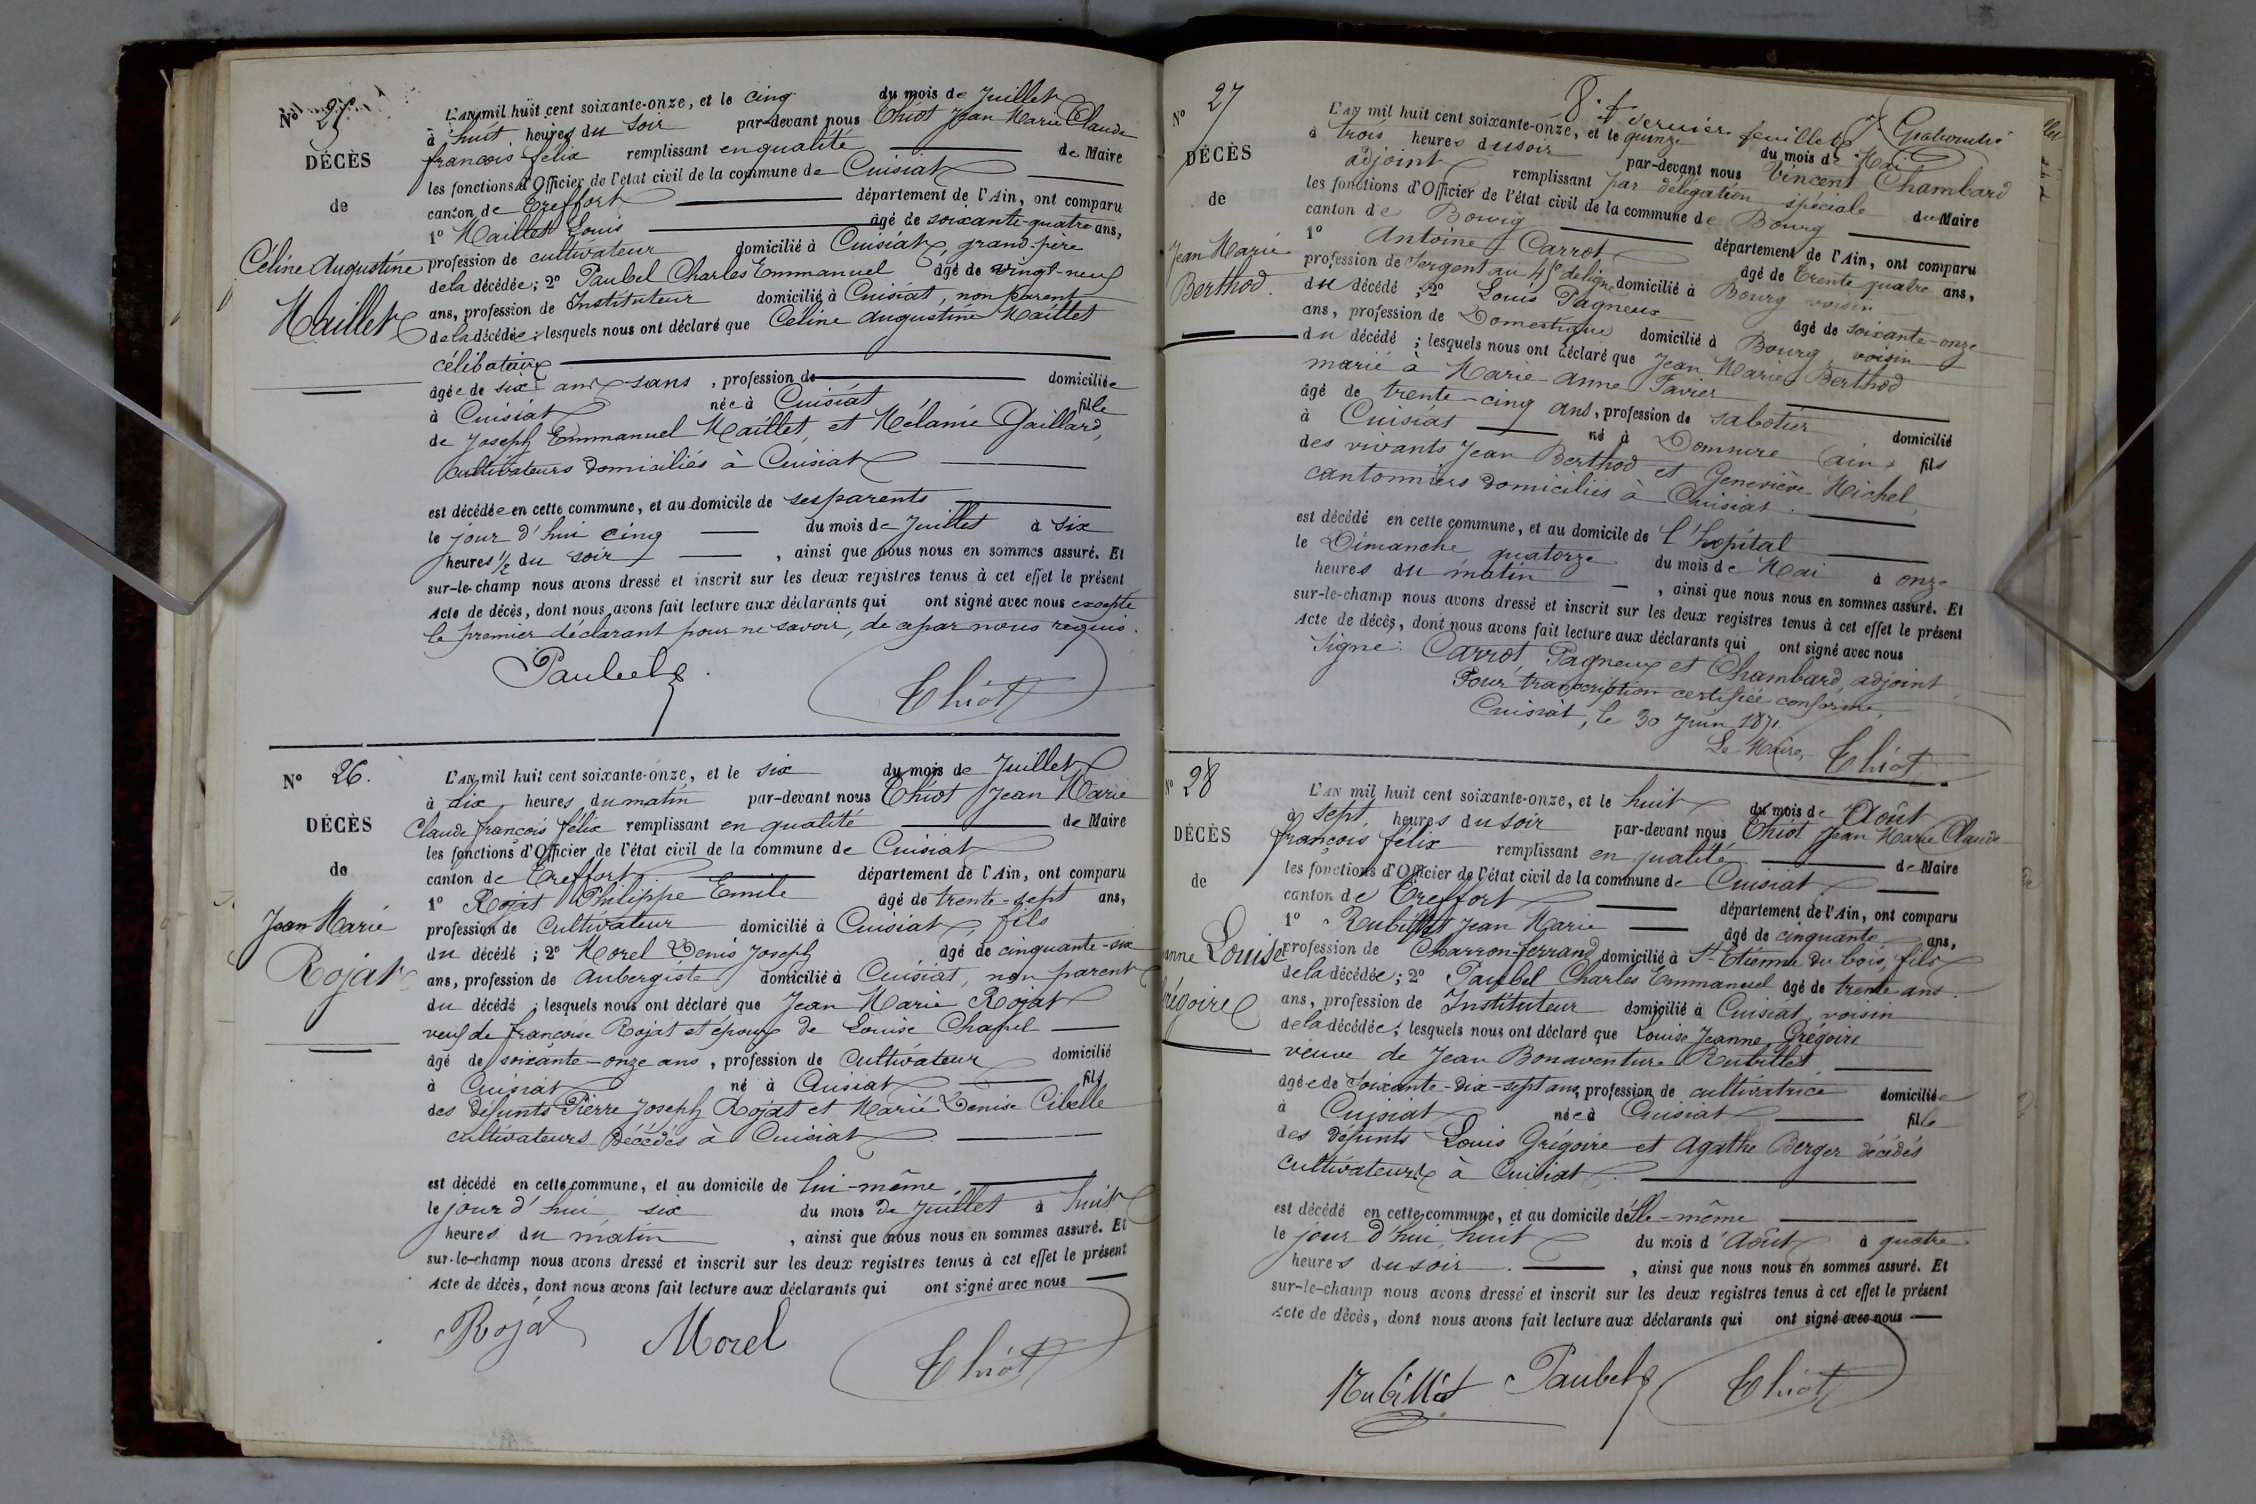 N° 25
L'AN mil huit cent soixante-onze, et le cinq du mois de Juillet
à huit heures du soir par-devant nous Thiot Jean Marie Claude
françois félix remplissant en qualité de Maire
DÉCÈS
les fonctions d'Officier de l'état civil de la commune de Cuisiat
de
canton de Treffort département de l'Ain, ont comparu
1° Maillet Louis âgé de soixante-quatre ans,
Céline Augustine
profession de cultivateur domicilié à Cuisiat, grand-père
de la décédée; 2° Paubel Charles Emmanuel âgé de vingt-neuf
Maillet
ans, profession de Instituteur domicilié à Cuisiat, non parent
de la décédée; lesquels nous ont déclaré que Céline Augustine Maillet
célibataire
âgée de six ans, profession de domiciliée
à Cuisiat née à Cuisiat fille
de Joseph Emmanuel Maillet, et Mélanie Gaillard,
cultivateurs domiciliés à Cuisiat
est décédée en cette commune, et au domicile de ses parents
le jour d'hui cinq du mois de Juillet à six
heures 1/2 du soir, ainsi que nous nous en sommes assuré. Et
sur-le-champ nous avons dressé et inscrit sur les deux registres tenus à cet effet le présent
Acte de décès, dont nous avons fait lecture aux déclarants qui ont signé avec nous excepté
le premier déclarant pour ne savoir, de ce par nous requis.
Paubel
Thiot
N° 26.
L'AN mil huit cent soixante-onze, et le six du mois de Juillet
à dix heures du matin par-devant nous Thiot Jean Marie
DÉCÈS
Claude françois félix remplissant en qualité de Maire
les fonctions d'Officier de l'état civil de la commune de Cuisiat
de
canton de Treffort département de l'Ain, ont comparu
1° Rojat Philippe Emile âgé de trente-sept ans,
Jean Marie
profession de Cultivateur domicilié à Cuisiat, fils
du décédé; 2° Morel Denis Joseph âgé de cinquante-six
Rojat
ans, profession de aubergiste domicilié à Cuisiat, non parent
du décédé; lesquels nous ont déclaré que Jean Marie Rojat
veuf de françoise Rojat et époux de Louise Chapel
âgé de soixante-onze ans, profession de Cultivateur domicilié
à Cuisiat né à Cuisiat fils
des défunts Pierre Joseph Rojat et Marie Denise Cibelle
cultivateurs décédés à Cuisiat
est décédé en cette commune, et au domicile de lui-même
le jour d'hui six du mois de Juillet à huit
heures du matin, ainsi que nous nous en sommes assuré. Et
sur-le-champ nous avons dressé et inscrit sur les deux registres tenus à cet effet le présent
Acte de décès, dont nous avons fait lecture aux déclarants qui ont signé avec nous
Rojat Morel Thiot
8e et dernier feuillet
N° 27
L'AN mil huit cent soixante-onze, et le quinze du mois de Mai
à trois heures du soir par-devant nous Vincent Chambard
DÉCÈS
adjoint remplissant par délégation spéciale du Maire
les fonctions d'Officier de l'état civil de la commune de Bourg
de
canton de Bourg département de l'Ain, ont comparu
1° Antoine Carrot âgé de Trente quatre ans,
Jean Marie
profession de Sergent au 4e de ligne domicilié à Bourg voisin
Berthod.
du décédé; 2° Louis Pagneux âgé de soixante-onze
ans, profession de Domestique domicilié à Bourg, voisin
du décédé; lesquels nous ont déclaré que Jean Marie Berthod
marié à Marie-Anne Favier
âgé de trente-cinq ans, profession de sabotier domicilié
à Cuisiat né à Domsure (ain) fils
des vivants Jean Berthod et Geneviève Michel,
cantonniers domiciliés à Cuisiat.
est décédé en cette commune, et au domicile de l'hôpital
le Dimanche quatorze du mois de Mai à onze
heures du matin, ainsi que nous nous en sommes assuré. Et
sur-le-champ nous avons dressé et inscrit sur les deux registres tenus à cet effet le présent
Acte de décès, dont nous avons fait lecture aux déclarants qui ont signé avec nous
Signé: Carrot, Pagneux et Chambard, adjoint
Pour transcription certifiée conforme,
Cuisiat, le 30 Juin 1871
Le Maire, Thiot
N° 28
L'AN mil huit cent soixante-onze, et le huit du mois de Août
à sept heures du soir par-devant nous Thiot Jean Marie Claude
DÉCÈS
françois félix remplissant en qualité de Maire
les fonctions d'Officier de l'état civil de la commune de Cuisiat
de
canton de Treffort département de l'Ain, ont comparu
1° Rubillet Jean Marie âgé de cinquante ans,
anne Louise
profession de Charron-ferrand domicilié à St-Etienne du bois, fils
de la décédée; 2° Paubel Charles Emmanuel âgé de trente ans.
régoire
ans, profession de Instituteur domicilié à Cuisiat, voisin
de la décédée; lesquels nous ont déclaré que Louise Jeanne Grégoire
veuve de Jean Bonaventure Rubillet
âgée de soixante-dix-sept ans, profession de cultivatrice domiciliée
à Cuisiat née à Cuisiat fille
des défunts Louis Grégoire et Agathe Berger décédés
cultivateurs à Cuisiat
est décédé en cette commune, et au domicile d'elle-même
le jour d'hui huit du mois d'Août à quatre
heures du soir, ainsi que nous nous en sommes assuré. Et
sur-le-champ nous avons dressé et inscrit sur les deux registres tenus à cet effet le présent
Acte de décès, dont nous avons fait lecture aux déclarants qui ont signé avec nous
Rubillet Paubel Thiot